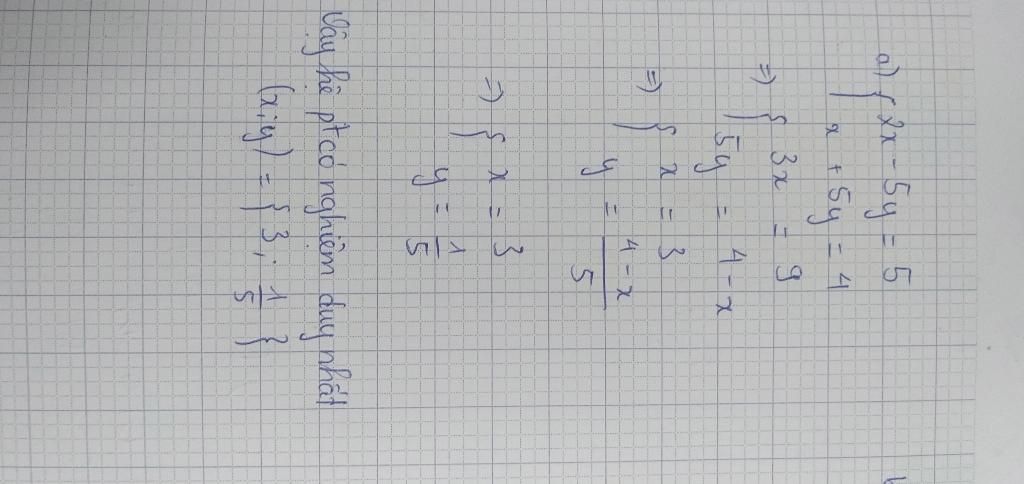 a) { 2x - 5y = 5
x + 5y = 4
=> { 3x = 9
5y = 4 - x
=> { x = 3
y = \frac{4-x}{5}
=> { x = 3
y = \frac{1}{5}
Vậy hệ pt có nghiệm duy nhất
(x;y) = { 3 ; \frac{1}{5} }